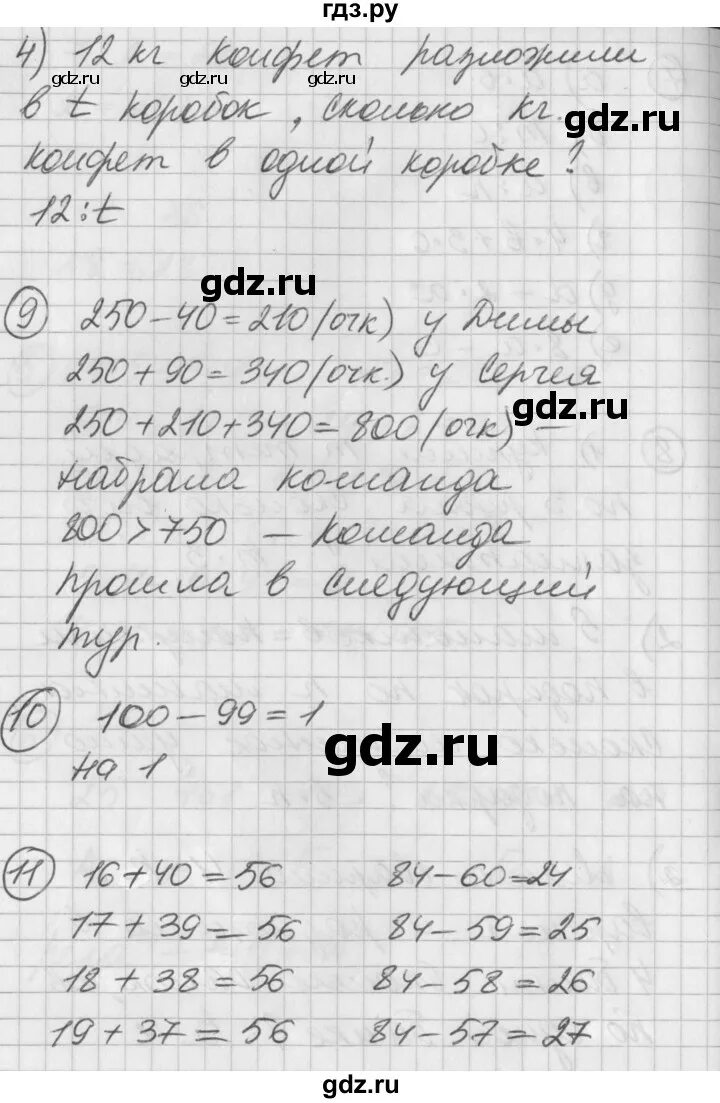 гдз.ру
4) 12 кг конфет разложили
gdz.ru gdz.ru gdz.ru gdz.ru
в t коробок, сколько кг.
gdz.ru
конфет в одной коробке?
12:t
gdz.ru
9 250-40=210(очк) у Димы
250+90=340(очк.) у Сергея
gdz.ru
250+210+340=800(очк) —
набрала команда
800>750 — команда
прошла в следующий
тур.
10 100-99=1
gdz.ru
на 1
11 16+40=56 84-60=24
17+39=56 84-59=25
18+38=56 84-58=26
19+37=56 84-57=27
gdz.ru